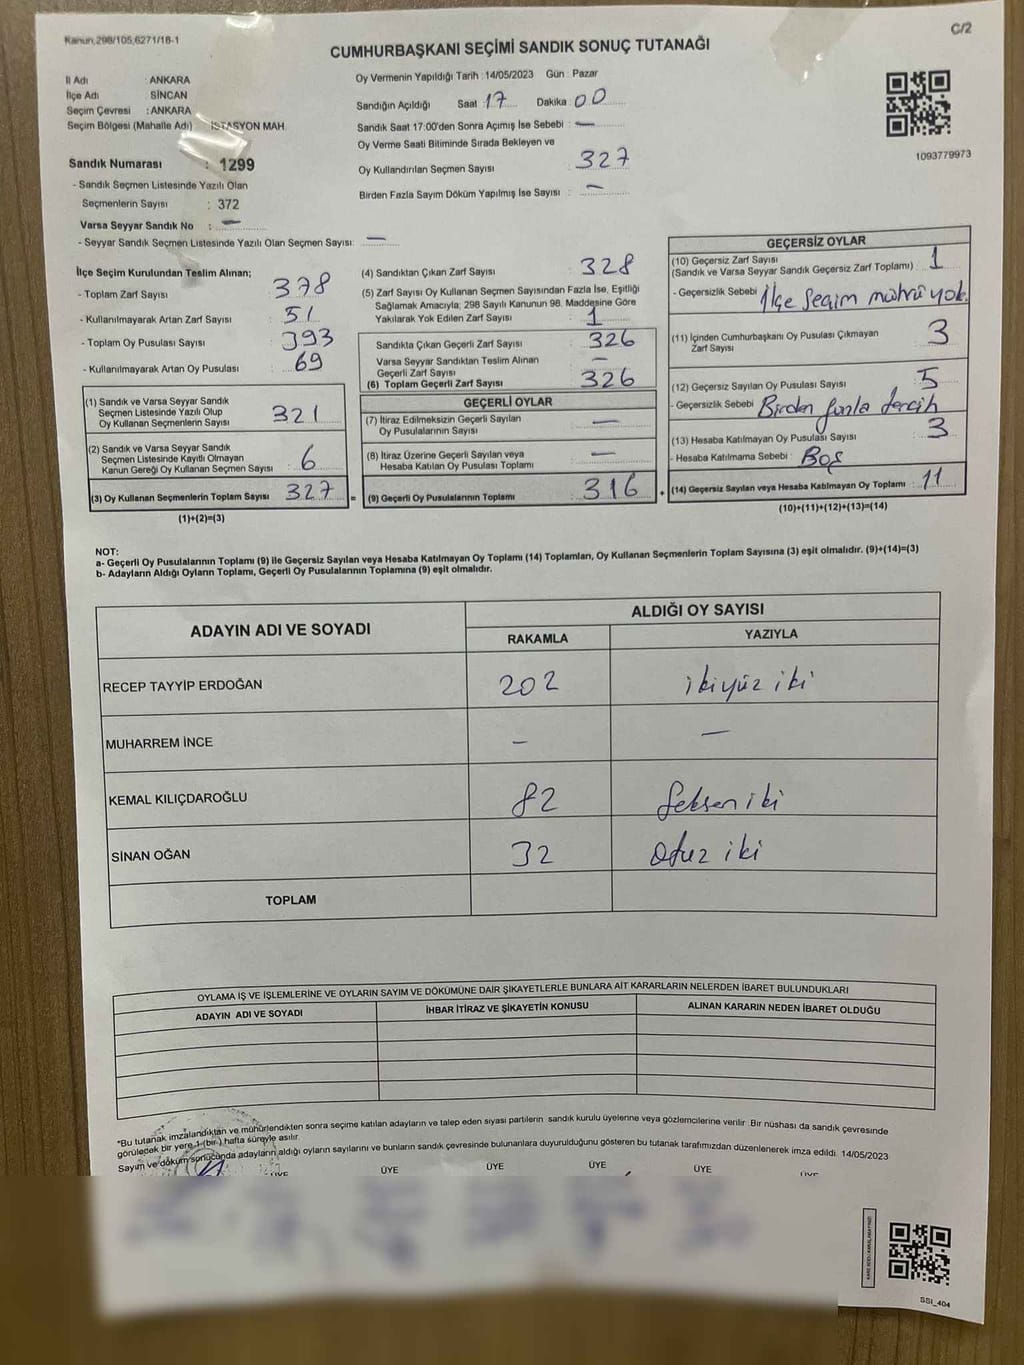 Kanun,298/105,6271/18-1
C/2
CUMHURBAŞKANI SEÇİMİ SANDIK SONUÇ TUTANAĞI
İl Adı : ANKARA
İlçe Adı : SİNCAN
Seçim Çevresi : ANKARA
Seçim Bölgesi (Mahalle Adı) İSTASYON MAH.
Sandık Numarası : 1299
- Sandık Seçmen Listesinde Yazılı Olan
Seçmenlerin Sayısı : 372
Varsa Seyyar Sandık No : —
- Seyyar Sandık Seçmen Listesinde Yazılı Olan Seçmen Sayısı: —
Oy Vermenin Yapıldığı Tarih : 14/05/2023 Gün : Pazar
Sandığın Açıldığı Saat : 17 Dakika : 00
Sandık Saat 17:00'den Sonra Açımış İse Sebebi : —
Oy Verme Saati Bitiminde Sırada Bekleyen ve
Oy Kullandırılan Seçmen Sayısı : 327
Birden Fazla Sayım Döküm Yapılmış İse Sayısı : —
1093779973
İlçe Seçim Kurulundan Teslim Alınan;
- Toplam Zarf Sayısı : 378
- Kullanılmayarak Artan Zarf Sayısı : 51
- Toplam Oy Pusulası Sayısı : 393
- Kullanılmayarak Artan Oy Pusulası : 69
(1) Sandık ve Varsa Seyyar Sandık
Seçmen Listesinde Yazılı Olup
Oy Kullanan Seçmenlerin Sayısı : 321
(2) Sandık ve Varsa Seyyar Sandık
Seçmen Listesinde Kayıtlı Olmayan
Kanun Gereği Oy Kullanan Seçmen Sayısı : 6
(3) Oy Kullanan Seçmenlerin Toplam Sayısı : 327 =
(1)+(2)=(3)
(4) Sandıktan Çıkan Zarf Sayısı : 328
(5) Zarf Sayısı Oy Kullanan Seçmen Sayısından Fazla İse, Eşitliği
Sağlamak Amacıyla; 298 Sayılı Kanunun 98. Maddesine Göre
Yakılarak Yok Edilen Zarf Sayısı : 1
Sandıkta Çıkan Geçerli Zarf Sayısı : 326
Varsa Seyyar Sandıktan Teslim Alınan
Geçerli Zarf Sayısı : —
(6) Toplam Geçerli Zarf Sayısı : 326
GEÇERLİ OYLAR
(7) İtiraz Edilmeksizin Geçerli Sayılan
Oy Pusulalarının Sayısı : —
(8) İtiraz Üzerine Geçerli Sayılan veya
Hesaba Katılan Oy Pusulası Toplamı : —
(9) Geçerli Oy Pusulalarının Toplamı : 316 +
GEÇERSİZ OYLAR
(10) Geçersiz Zarf Sayısı
(Sandık ve Varsa Seyyar Sandık Geçersiz Zarf Toplamı) : 1
- Geçersizlik Sebebi : İlçe seçim mührü yok.
(11) İçinden Cumhurbaşkanı Oy Pusulası Çıkmayan
Zarf Sayısı : 3
(12) Geçersiz Sayılan Oy Pusulası Sayısı : 5
- Geçersizlik Sebebi : Birden fazla tercih
(13) Hesaba Katılmayan Oy Pusulası Sayısı : 3
- Hesaba Katılmama Sebebi : Boş
(14) Geçersiz Sayılan veya Hesaba Katılmayan Oy Toplamı : 11
(10)+(11)+(12)+(13)=(14)
NOT:
a- Geçerli Oy Pusulalarının Toplamı (9) ile Geçersiz Sayılan veya Hesaba Katılmayan Oy Toplamı (14) Toplamları, Oy Kullanan Seçmenlerin Toplam Sayısına (3) eşit olmalıdır. (9)+(14)=(3)
b- Adayların Aldığı Oyların Toplamı, Geçerli Oy Pusulalarının Toplamına (9) eşit olmalıdır.
ADAYIN ADI VE SOYADI
ALDIĞI OY SAYISI
RAKAMLA YAZIYLA
RECEP TAYYİP ERDOĞAN 202 ikiyüz iki
MUHARREM İNCE — —
KEMAL KILIÇDAROĞLU 82 Seksen iki
SİNAN OĞAN 32 Otuz iki
TOPLAM
OYLAMA İŞ VE İŞLEMLERİNE VE OYLARIN SAYIM VE DÖKÜMÜNE DAİR ŞİKAYETLERLE BUNLARA AİT KARARLARIN NELERDEN İBARET BULUNDUKLARI
ADAYIN ADI VE SOYADI İHBAR İTİRAZ VE ŞİKAYETİN KONUSU ALINAN KARARIN NEDEN İBARET OLDUĞU
*Bu tutanak imzalandıktan ve mühürlendikten sonra seçime katılan adayların ve talep eden siyasi partilerin sandık kurulu üyelerine veya gözlemcilerine verilir. Bir nüshası da sandık çevresinde
görülecek bir yere 1 (bir) hafta süreyle asılır.
Sayım ve döküm sonucunda adayların aldığı oyların sayılarını ve bunların sandık çevresinde bulunanlara duyurulduğunu gösteren bu tutanak tarafımızdan düzenlenerek imza edildi. 14/05/2023
ÜYE ÜYE ÜYE ÜYE ÜYE ÜYE
SSI_404